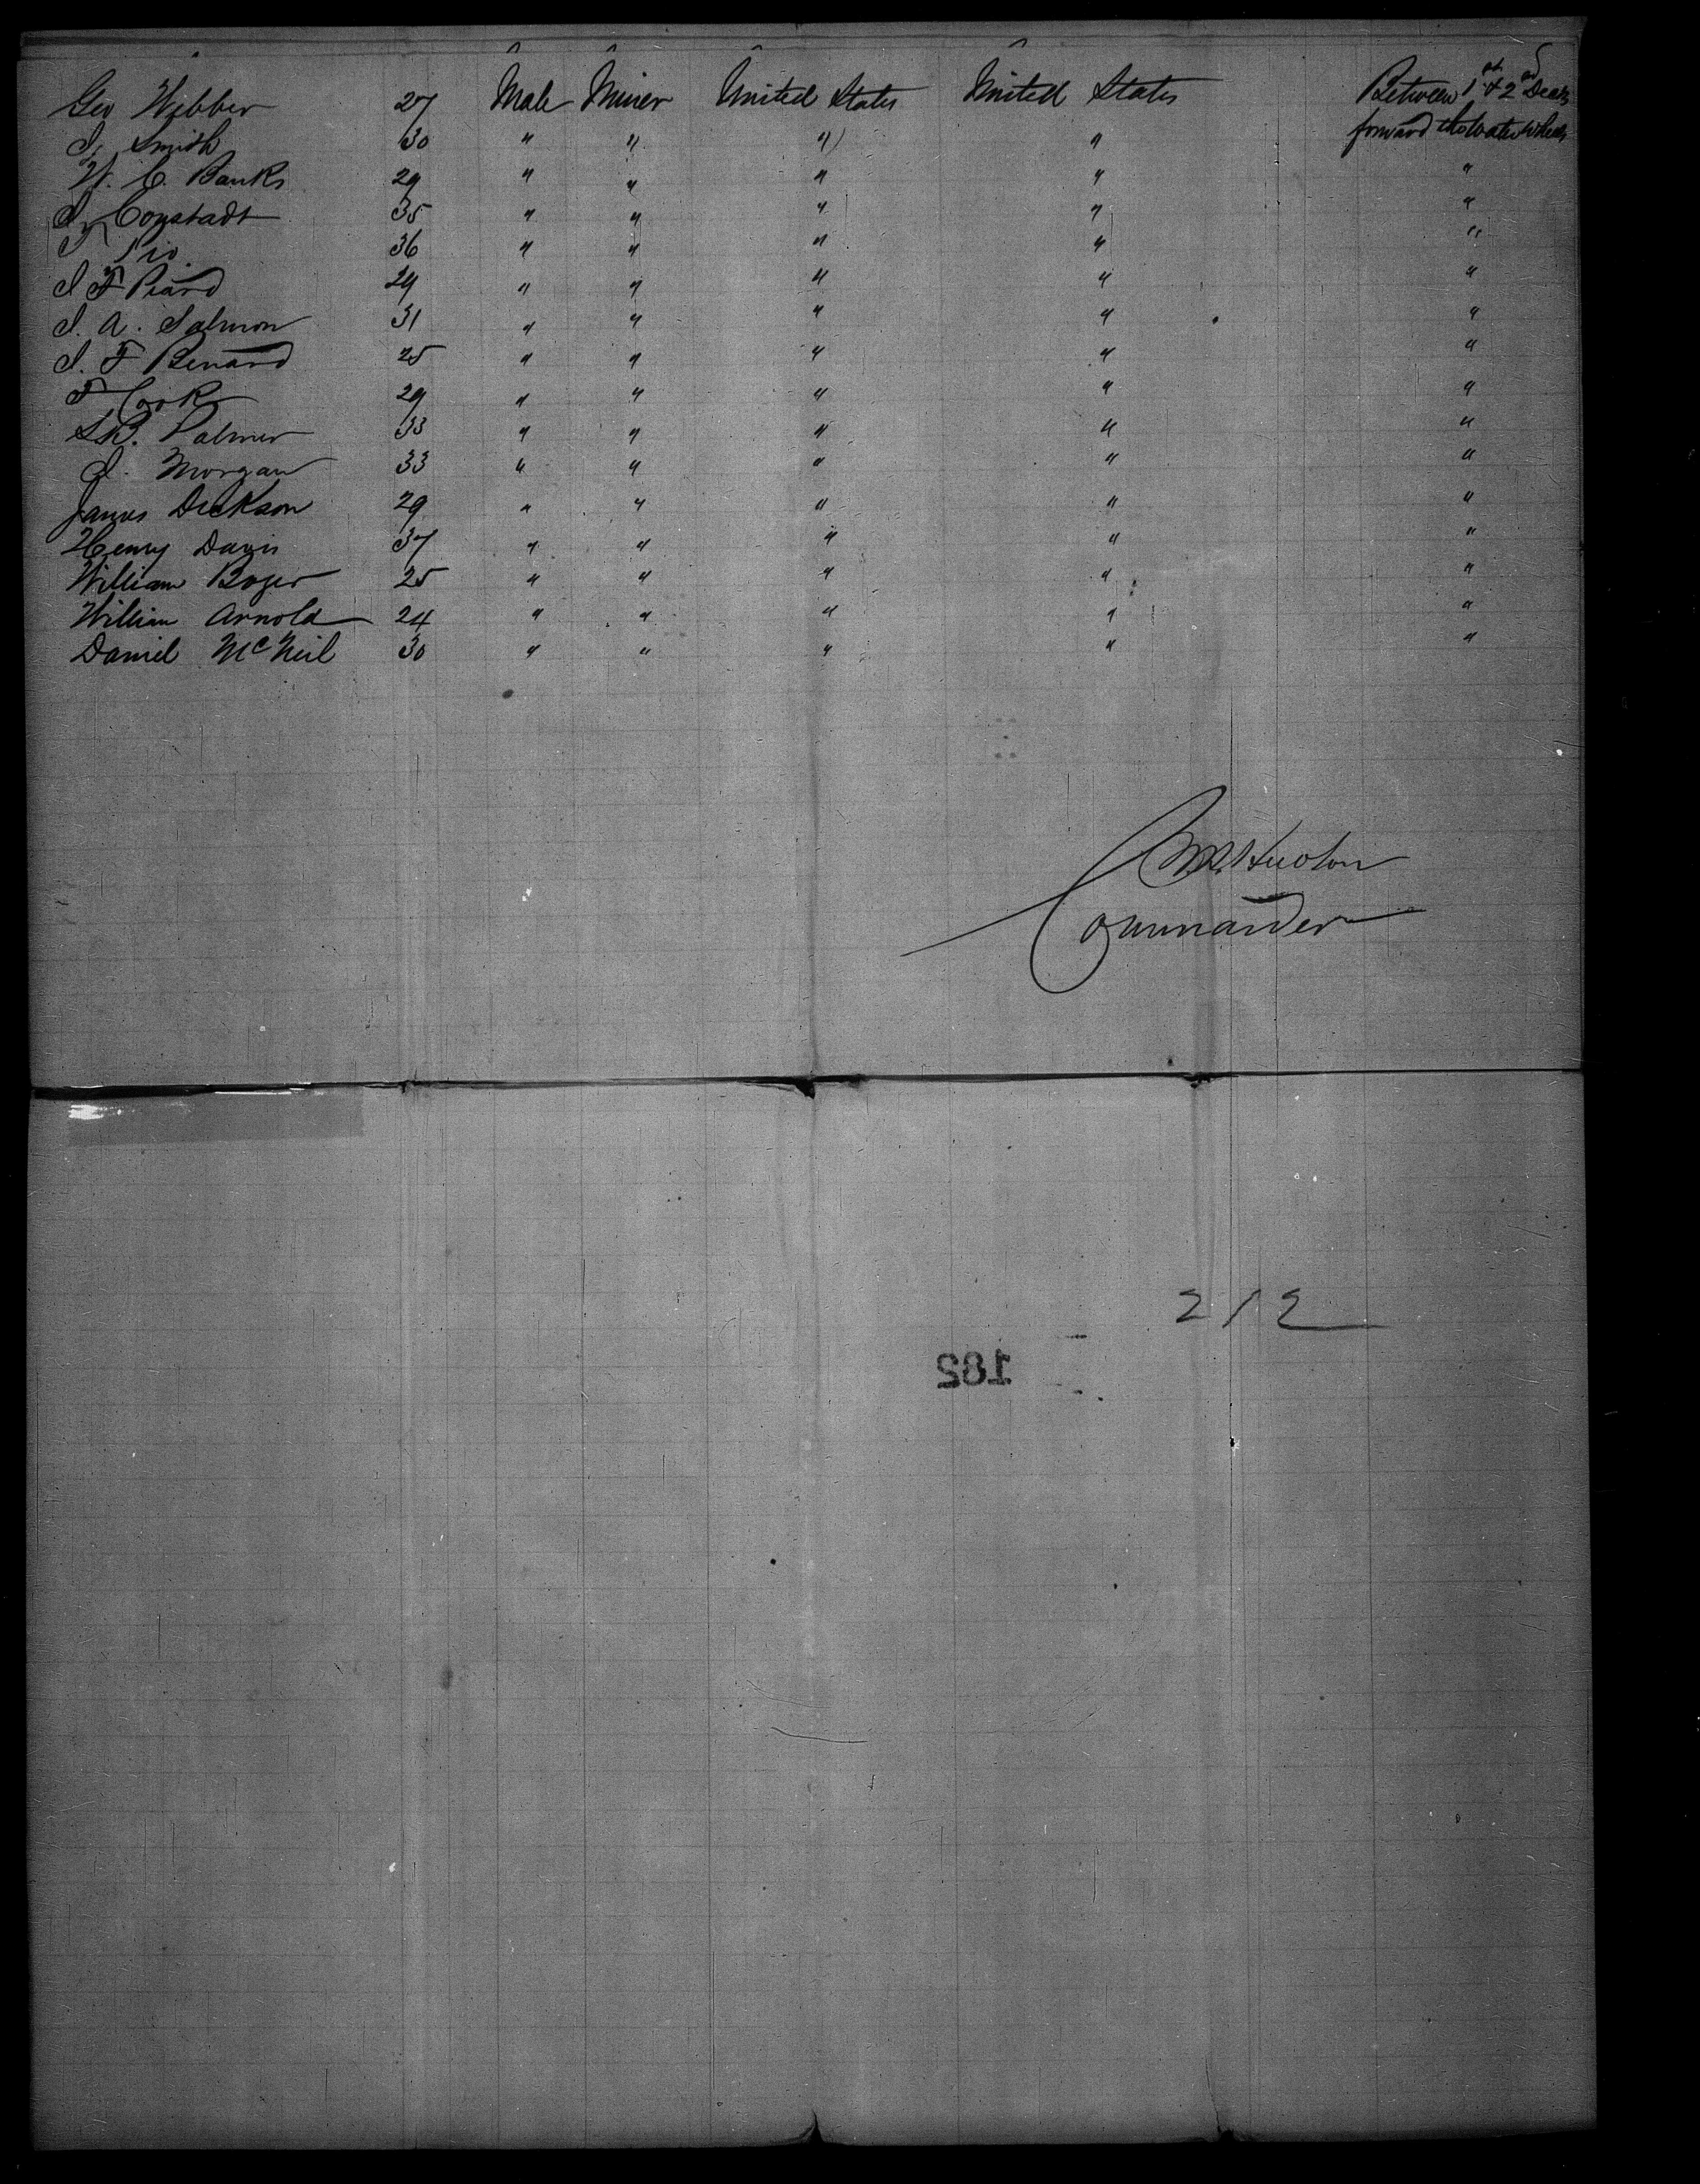 Geo Webber 27 Male Miner United States United States Between 1st & 2nd Decks
I, Smith 30 " " " " forward the Water Wheels
W. C. Banks 29 " " " " "
I, Constadt 35 " " " " "
T 36 " " " " "
I F Peard 29 " " " " "
I. A. Salmon 31 " " " " "
I. F Benard 25 " " " " "
F Cook 29 " " " " "
S.B. Palmer 33 " " " " "
I. Morgan 33 " " " " "
James Dickson 29 " " " " "
Henry Davis 37 " " " " "
William Boyer 25 " " " " "
William Arnold 24 " " " " "
Daniel McNeil 30 " " " " "
Commander
212
182